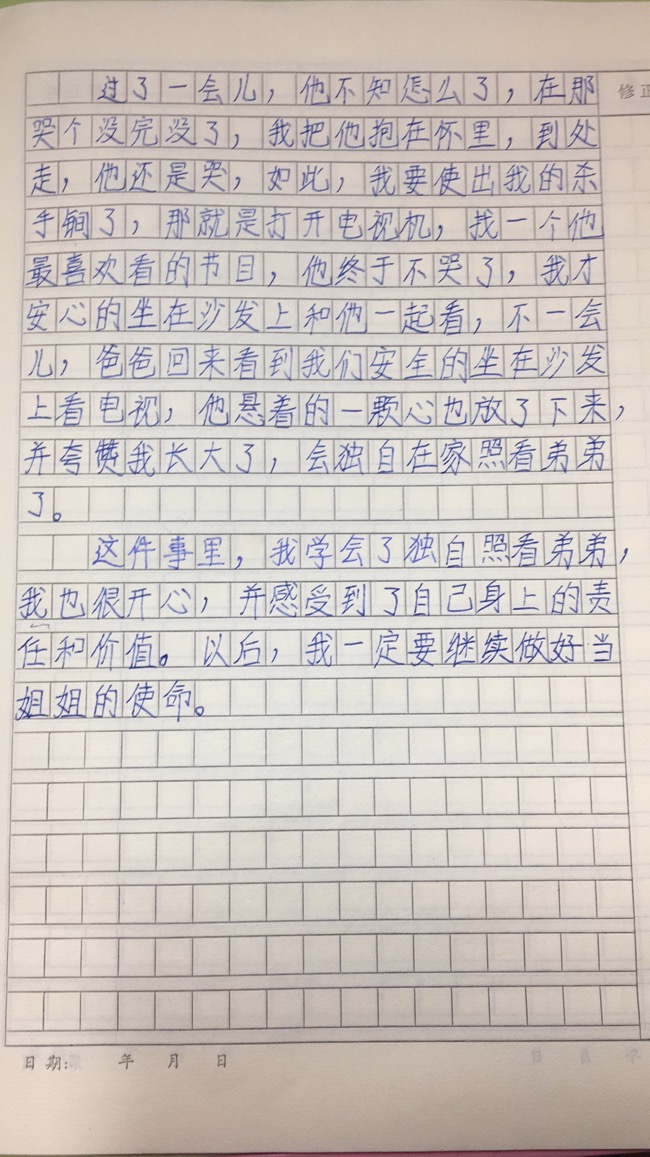 过了一会儿，他不知怎么了，在那
修正
哭个没完没了，我把他抱在怀里，到处
走，他还是哭，如此，我要使出我的杀
手锏了，那就是打开电视机，找一个他
最喜欢看的节目，他终于不哭了，我才
安心的坐在沙发上和他一起看，不一会
儿，爸爸回来看到我们安全的坐在沙发
上看电视，他悬着的一颗心也放了下来，
并夸赞我长大了，会独自在家照看弟弟
了。
这件事里，我学会了独自照看弟弟，
我也很开心，并感受到了自己身上的责
任和价值。以后，我一定要继续做好当
姐姐的使命。
日期: 年 月 日